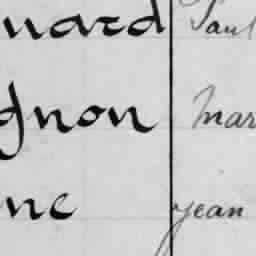 nard Paul
gnon Mar
ne Jean